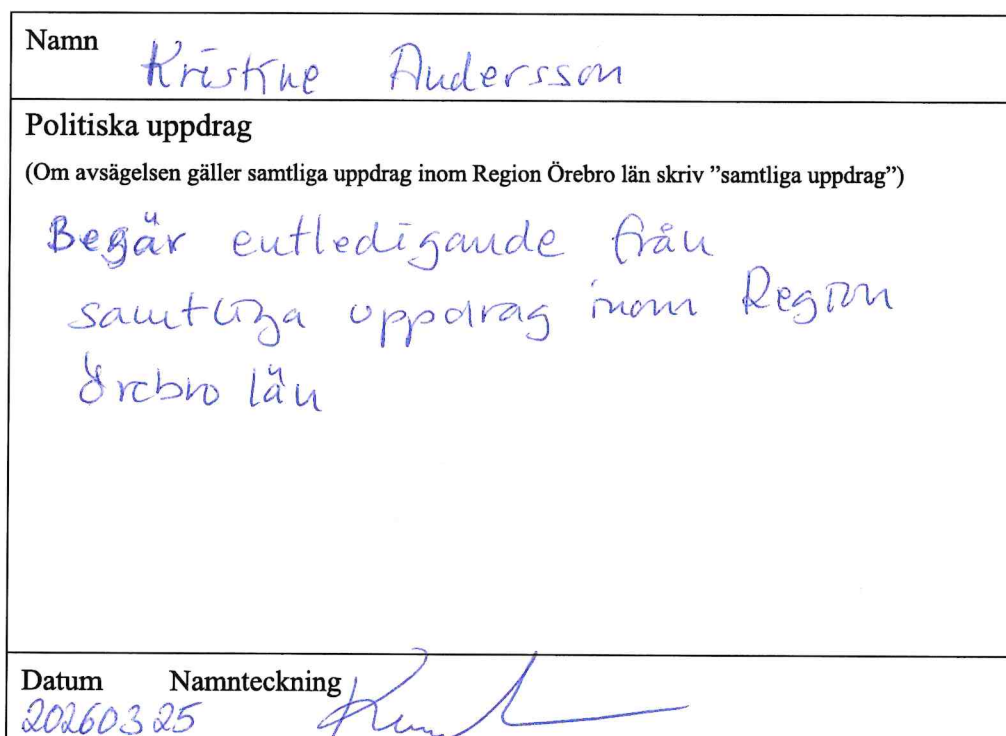 Namn
Kristine Andersson
Politiska uppdrag
(Om avsägelsen gäller samtliga uppdrag inom Region Örebro län skriv ”samtliga uppdrag”)
Begär entledigande från
samtliga uppdrag inom Region
Örebro län
Datum Namnteckning
20260325